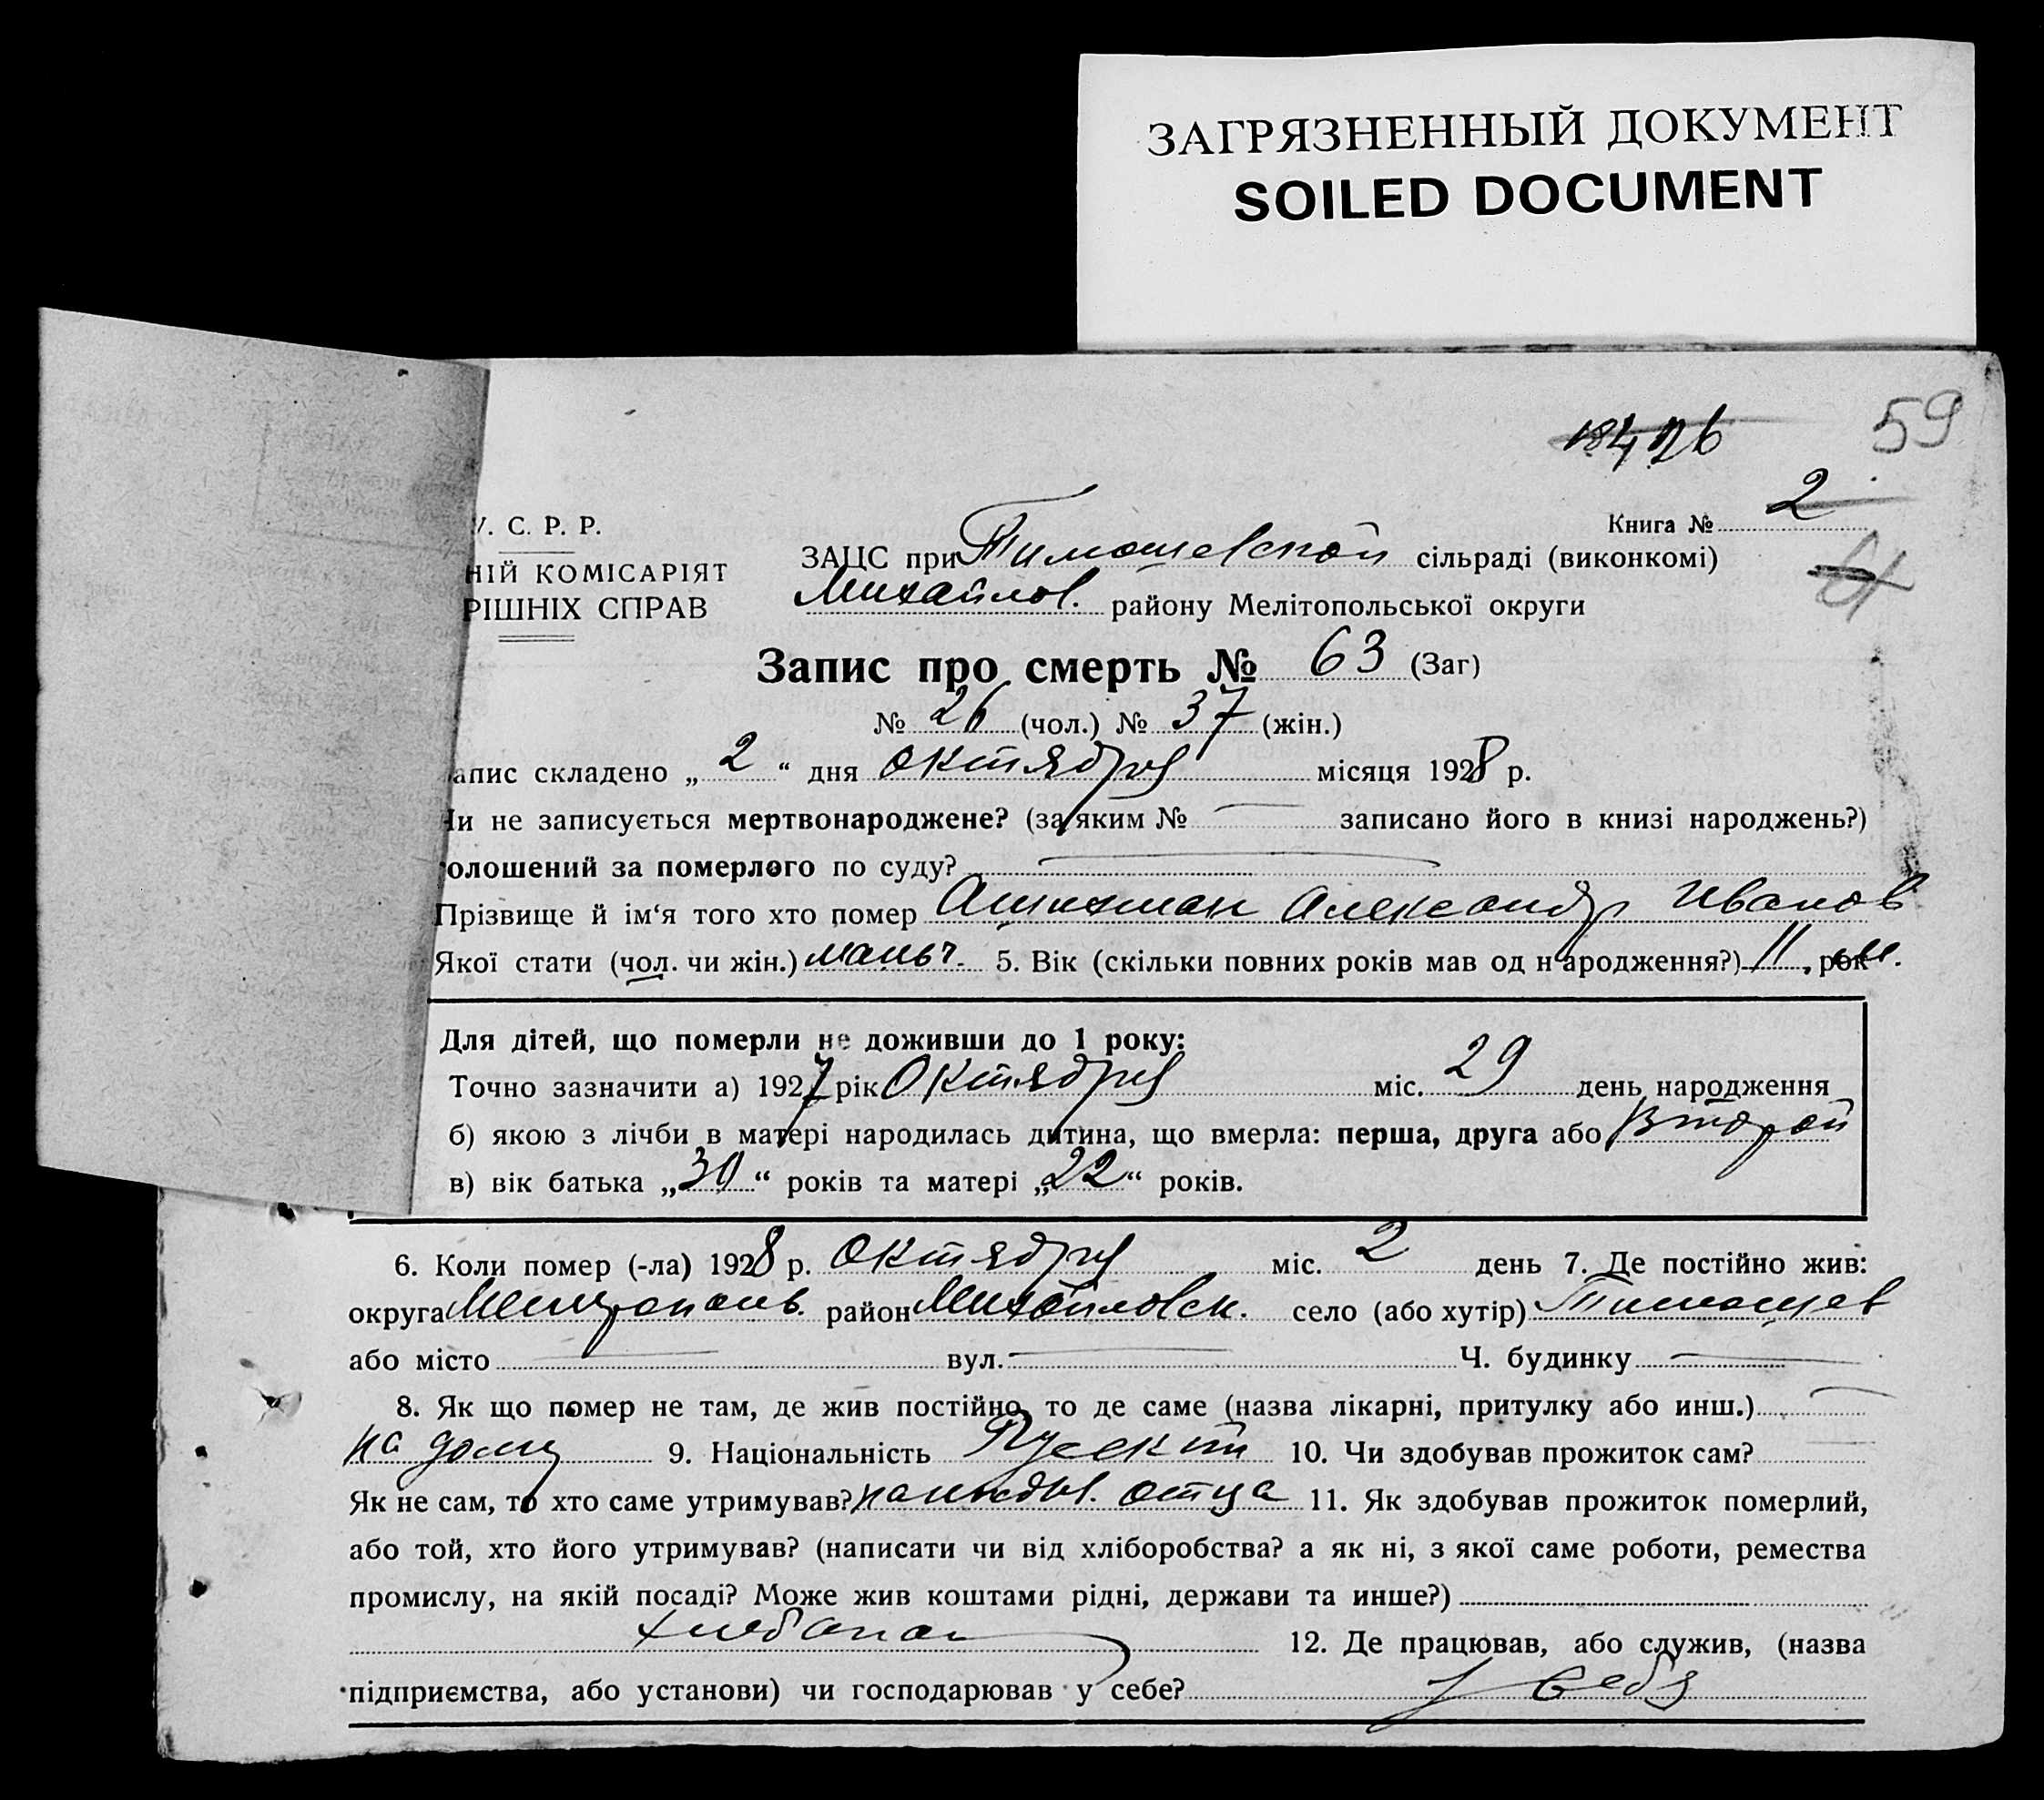 ЗАГРЯЗНЕННЫЙ ДОКУМЕНТ
SOILED DOCUMENT
59
Книга № 2
У. С. Р. Р.
ЗАЦС при Тимошевской сільраді (виконкомі)
НІЙ КОМІСАРІЯТ
Михайлов. району Мелітопольської округи
РІШНІХ СПРАВ
Запис про смерть № 63 (Заг)
№ 26 (чол.) № 37 (жін.)
апис складено „ 2 “ дня октября місяця 1928 р.
Чи не записується мертвонароджене? (за яким № — записано його в книзі народжень?)
олошений за померлого по суду? —
Прізвище й ім‘я того хто помер Александр Иванов
Якої стати (чол. чи жін.) мальч. 5. Вік (скільки повних років мав од народження?) 11 м.
Для дітей, що померли не доживши до 1 року:
Точно зазначити а) 1927 рік Октября міс. 29 день народження
б) якою з лічби в матері народилась дитина, що вмерла: перша, друга або Второй
в) вік батька „30“ років та матері „22“ років.
6. Коли помер (-ла) 1928 р. октября міс. 2 день 7. Де постійно жив:
округа Мелитополь. район Михайловск. село (або хутір) Тимошев
або місто — вул. — Ч. будинку —
8. Як що помер не там, де жив постійно, то де саме (назва лікарні, притулку або инш.) —
на дому 9. Національність Русский 10. Чи здобував прожиток сам?
Як не сам, то хто саме утримував? на иждив. отца 11. Як здобував прожиток померлий,
або той, хто його утримував? (написати чи від хліборобства? а як ні, з якої саме роботи, ремества
промислу, на якій посаді? Може жив коштами рідні, держави та инше?)
хлебопаш 12. Де працював, або служив, (назва
підприємства, або установи) чи господарював у себе? у себя